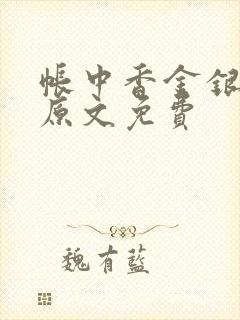 帳中香金銀
原文免費
魏有藍